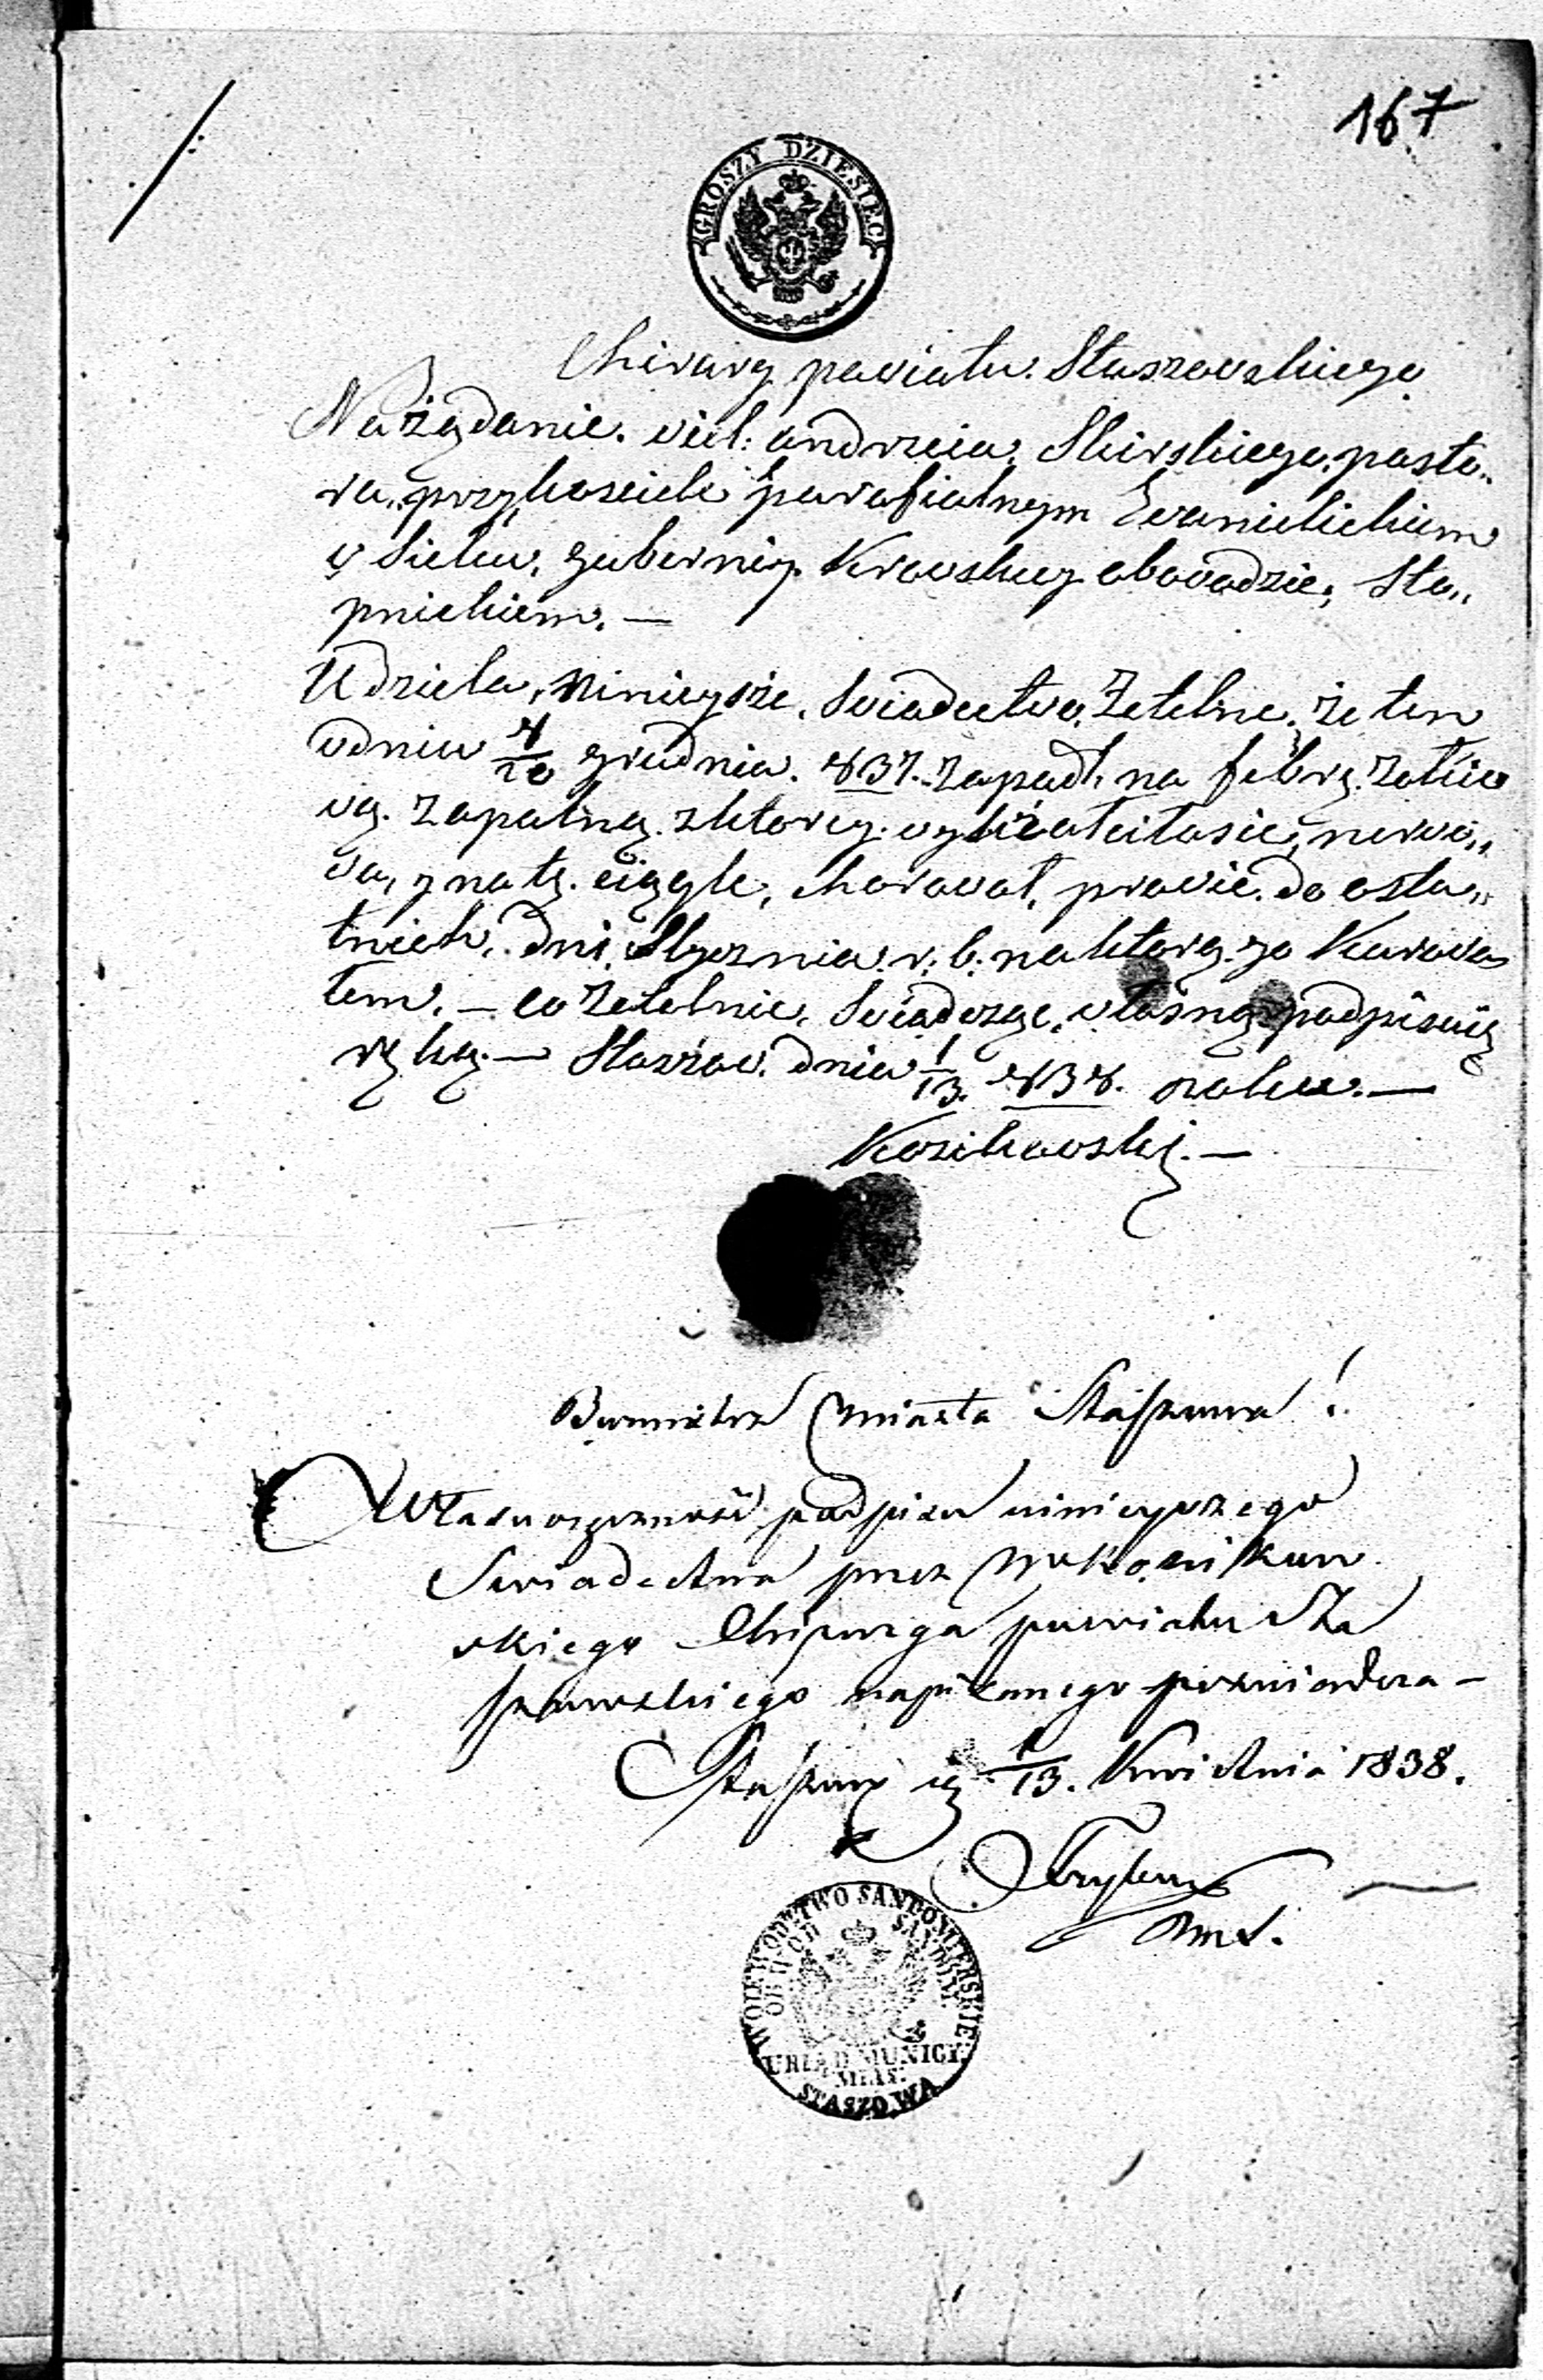 167
GROSZY DZIESIEC
Chirurg powiatu Staszowskiego
Na żądanie. wiel: andrzeia, Skierskiego, pasto„
ra, przykosciele parafialnym Ewanielickiem
w Sielcu, guberniy. Krowskiey obowodzie, Sto„
pnickiem. —
Udziela, Ninieysze, Swiadectwo, Zetelne, że ten
wdniu grudnia. 837. zapadł, na febrę. żołcio
wą. zapalną. zktorey. nerwo„
wa, y na tę. ciągle, chorował, prawie. do osta„
tnich, dni, Stycznia. r. b. naktorą. go Kurowa
łem. — co Zetelnie, Swiadcząc, własną podpisuię
ręką. — Staszow. dnia 1/13. 838. roku. —
Kozikowski. —
Burmistrz Miasta Staszowa!
Własnoręczność podpisu ninieyszego
Swiadectwa przez Kozikow
skiego Chirurga powiatu Sta
szowskiego napisanego poświadcza —
Staszow d. 1/13. Kwietnia 1838.
WOIEWODZTWO SANDOMIERSKIE
OBWOD SANDOM.
URZĄD MUNICY.
MIAS.
STASZOWA